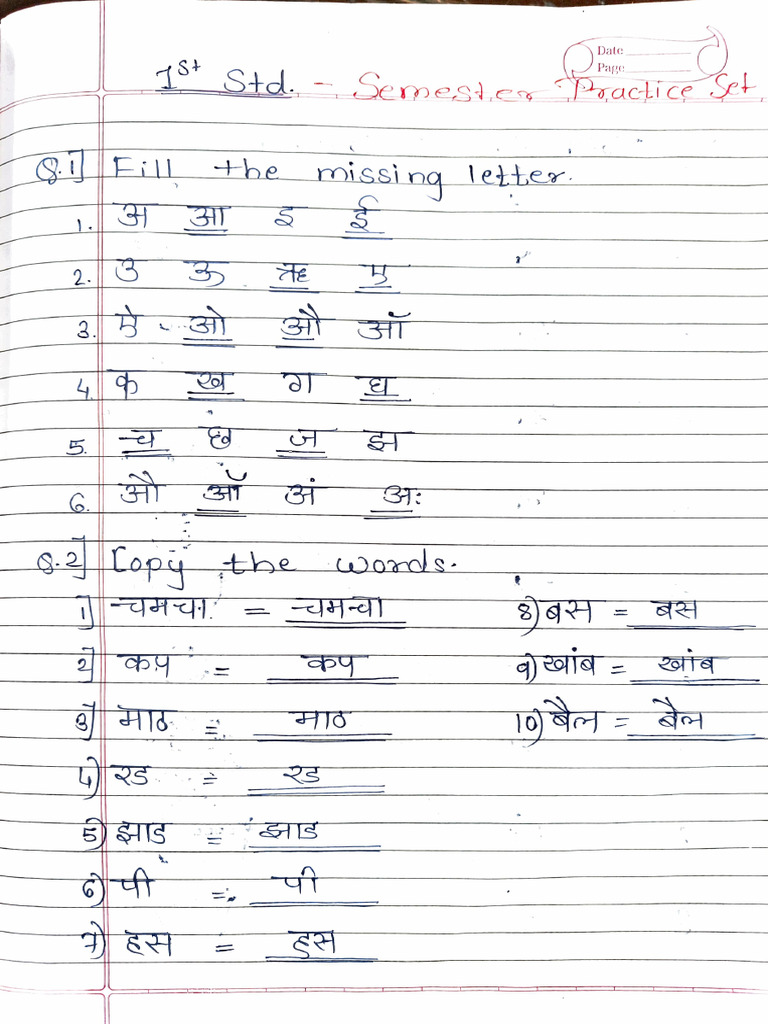 Date
Page
1st Std. - Semester Practice Set
Q.1] Fill the missing letter.
1. अ आ इ ई
2. उ ऊ ऋ ए
3. ऐ ओ औ ऑ
4. क ख ग घ
5. च छ ज झ
6. औ ऑ अं अः
Q.2] Copy the words.
1] चमचा = चमचा 8) बस = बस
2] कप = कप 9) खांब = खांब
3] माठ = माठ 10) बैल = बैल
4) रड = रड
5) झाड = झाड
6) पी = पी
7) हस = हस